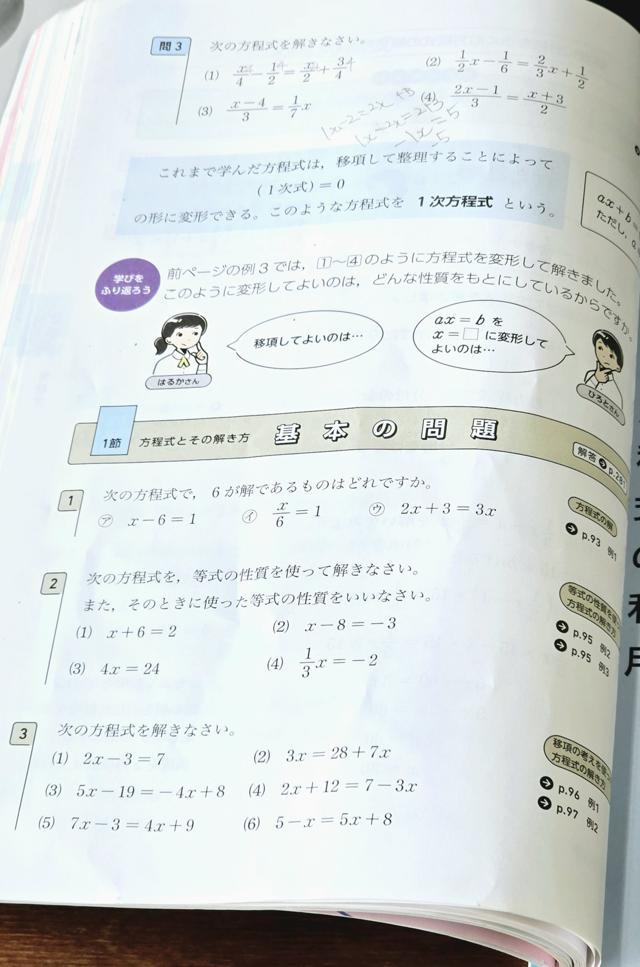 問3 次の方程式を解きなさい。
(1) x/4 − 1/2 = x/2 + 3/4 (2) 1/2 x − 1/6 = 2/3 x + 1/2
(3) (x−4)/3 = 1/7 x (4) (2x−1)/3 = (x+3)/2
1x−2=2x+3
1x−2x=2+3
−1x=5
−5
これまで学んだ方程式は，移項して整理することによって
(1次式)＝0
の形に変形できる。このような方程式を 1次方程式 という。
ax＋b＝
ただし，a
学びをふり返ろう
前ページの例3では，1〜4のように方程式を変形して解きました。
このように変形してよいのは，どんな性質をもとにしているからですか。
移項してよいのは…
はるかさん
ax＝b を
x＝□ に変形して
よいのは…
ひろとさん
1節 方程式とその解き方 基本の問題
解答 p.281
1 次の方程式で，6が解であるものはどれですか。
㋐ x−6＝1 ㋑ x/6＝1 ㋒ 2x＋3＝3x
方程式の解
p.93 例1
2 次の方程式を，等式の性質を使って解きなさい。
また，そのときに使った等式の性質をいいなさい。
(1) x＋6＝2 (2) x−8＝−3
(3) 4x＝24 (4) 1/3 x＝−2
等式の性質を使
方程式の解き方
p.95 例2
p.95 例3
3 次の方程式を解きなさい。
(1) 2x−3＝7 (2) 3x＝28＋7x
(3) 5x−19＝−4x＋8 (4) 2x＋12＝7−3x
(5) 7x−3＝4x＋9 (6) 5−x＝5x＋8
移項の考えを使
方程式の解き方
p.96 例1
p.97 例2